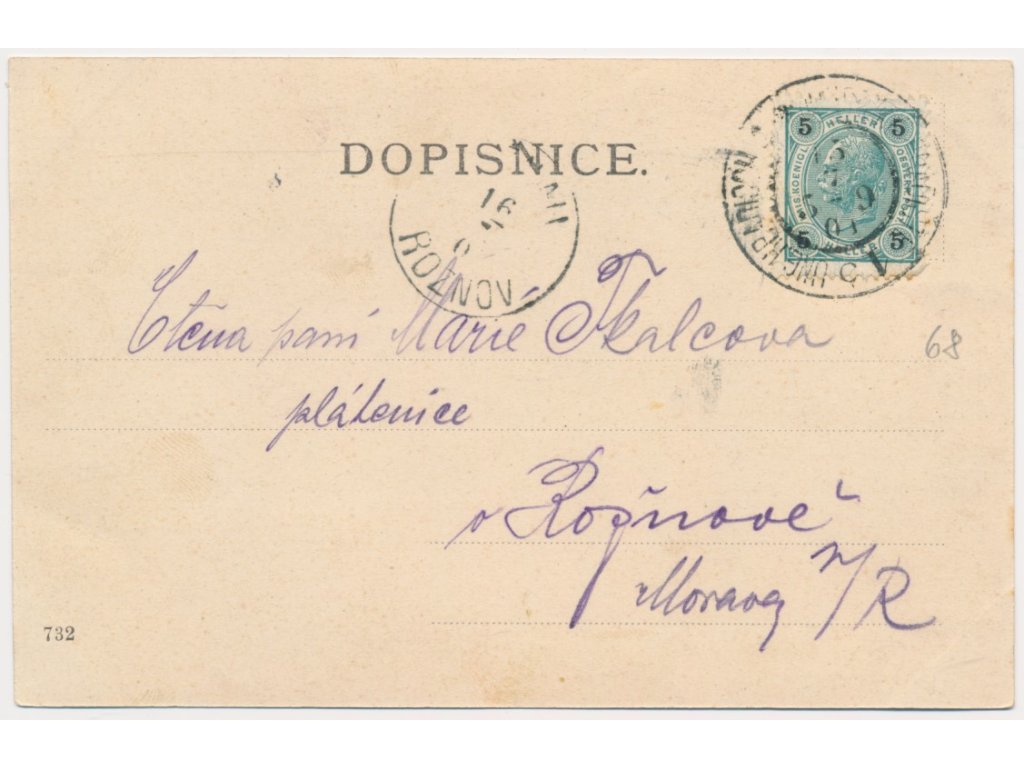 DOPISNICE.
5 HELLER 5
5 HELLER 5
16
ROŽNOV
UNG. HRADISCH
Ctěná paní Marie Tkalcova
68
plátenice
v Rožnově
n/R
Morava
732